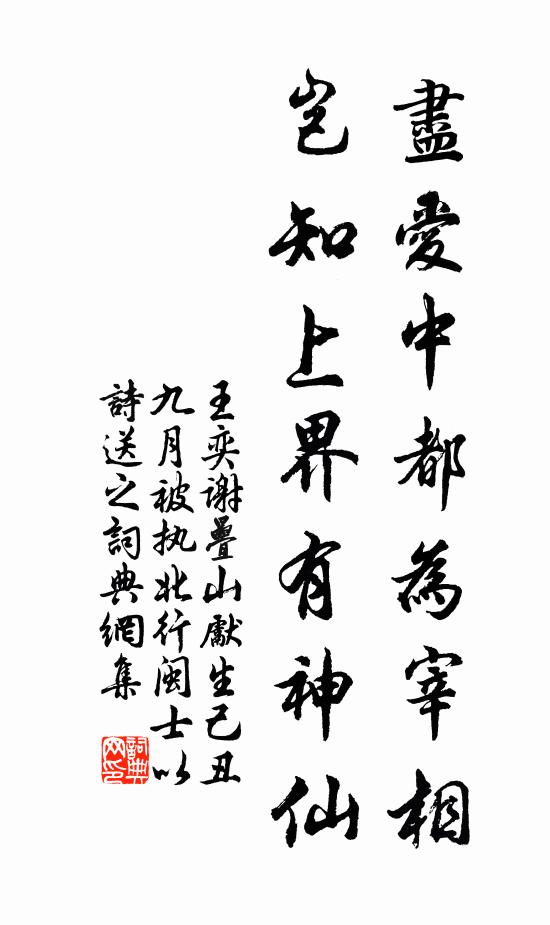 盡愛中都為宰相
豈知上界有神仙
王奕谢疊山獻生己丑
九月被执北行闽士以
詩送之詞典網集
詞典网印